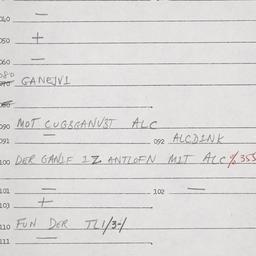 040 —
050 +
060 —
080 GANEJVI
090 MOT CUGBGANVBT ALC
091 — 092 ALCDINK
100 DER GANIF IZ ANTLOFN MIT ALC % 355
101 — 102 —
103 +
110 FUN DER TLI/3-/
111 —